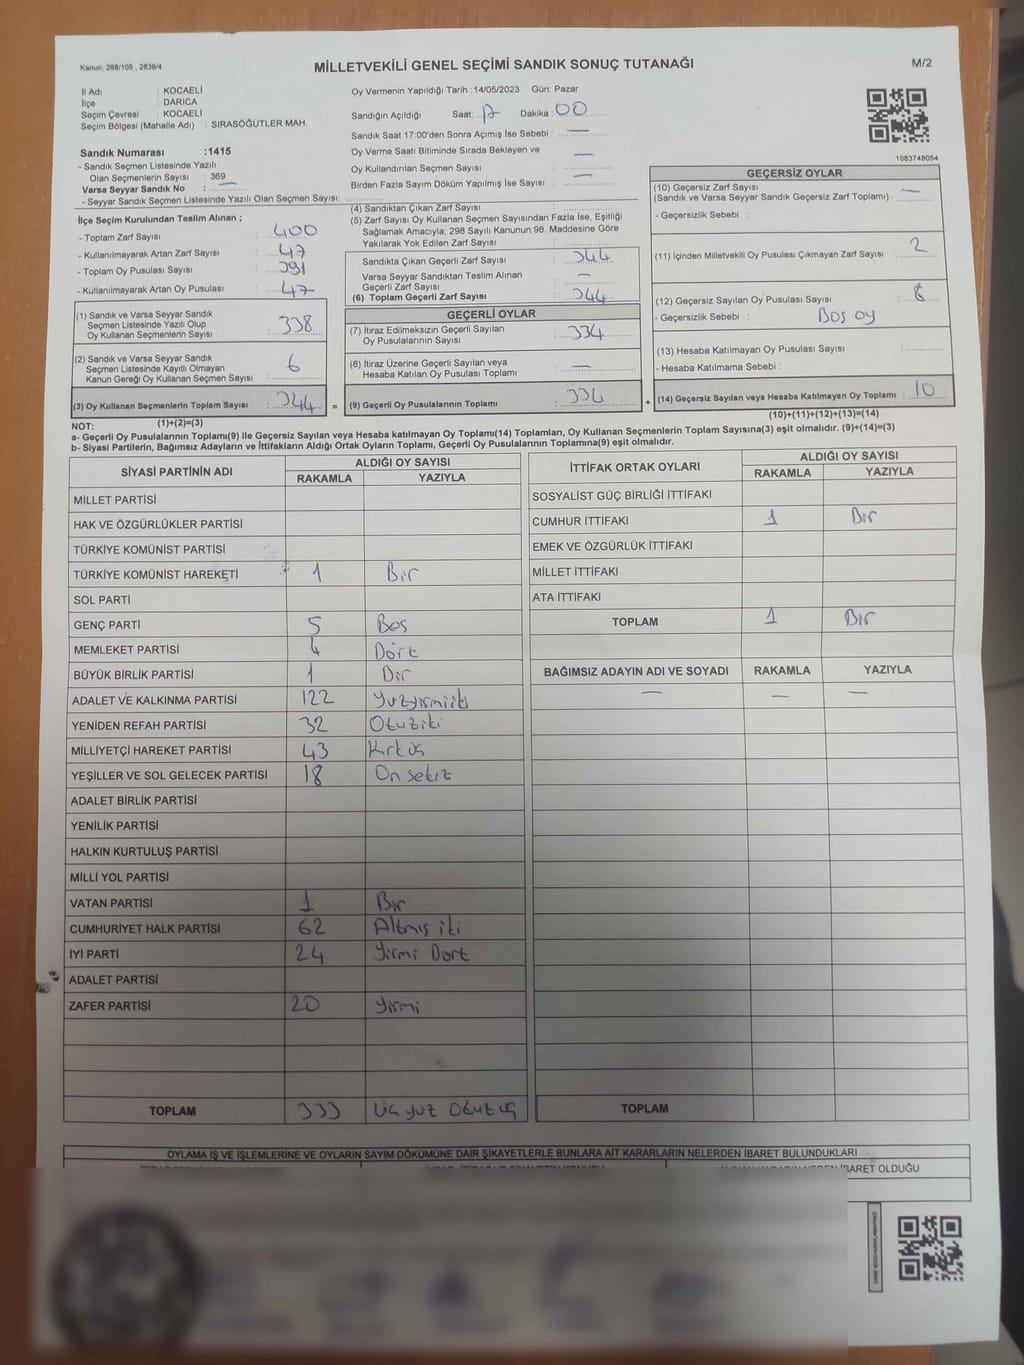 Kanun: 298/105 , 2839/4
MİLLETVEKİLİ GENEL SEÇİMİ SANDIK SONUÇ TUTANAĞI
M/2
İl Adı : KOCAELİ
İlçe : DARICA
Seçim Çevresi : KOCAELİ
Seçim Bölgesi (Mahalle Adı) : SIRASÖĞÜTLER MAH.
Sandık Numarası :1415
- Sandık Seçmen Listesinde Yazılı
Olan Seçmenlerin Sayısı : 369
Varsa Seyyar Sandık No : —
- Seyyar Sandık Seçmen Listesinde Yazılı Olan Seçmen Sayısı:
Oy Vermenin Yapıldığı Tarih :14/05/2023 Gün: Pazar
Sandığın Açıldığı Saat: 17 Dakika : 00
Sandık Saat 17:00'den Sonra Açımış İse Sebebi : —
Oy Verme Saati Bitiminde Sırada Bekleyen ve
Oy Kullandırılan Seçmen Sayısı : —
Birden Fazla Sayım Döküm Yapılmış İse Sayısı : —
1083748054
İlçe Seçim Kurulundan Teslim Alınan ;
- Toplam Zarf Sayısı : 400
- Kullanılmayarak Artan Zarf Sayısı : 47
- Toplam Oy Pusulası Sayısı : 391
- Kullanılmayarak Artan Oy Pusulası : 47
(1) Sandık ve Varsa Seyyar Sandık
Seçmen Listesinde Yazılı Olup
Oy Kullanan Seçmenlerin Sayısı : 338
(2) Sandık ve Varsa Seyyar Sandık
Seçmen Listesinde Kayıtlı Olmayan
Kanun Gereği Oy Kullanan Seçmen Sayısı : 6
(3) Oy Kullanan Seçmenlerin Toplam Sayısı : 344 =
(1)+(2)=(3)
(4) Sandıktan Çıkan Zarf Sayısı :
(5) Zarf Sayısı Oy Kullanan Seçmen Sayısından Fazla İse, Eşitliği
Sağlamak Amacıyla; 298 Sayılı Kanunun 98. Maddesine Göre
Yakılarak Yok Edilen Zarf Sayısı :
Sandıkta Çıkan Geçerli Zarf Sayısı : 344
Varsa Seyyar Sandıktan Teslim Alınan
Geçerli Zarf Sayısı : —
(6) Toplam Geçerli Zarf Sayısı : 344
GEÇERLİ OYLAR
(7) İtiraz Edilmeksizin Geçerli Sayılan
Oy Pusulalarının Sayısı : 334
(8) İtiraz Üzerine Geçerli Sayılan veya
Hesaba Katılan Oy Pusulası Toplamı : —
(9) Geçerli Oy Pusulalarının Toplamı : 334 +
GEÇERSİZ OYLAR
(10) Geçersiz Zarf Sayısı —
(Sandık ve Varsa Seyyar Sandık Geçersiz Zarf Toplamı) :
- Geçersizlik Sebebi :
(11) İçinden Milletvekili Oy Pusulası Çıkmayan Zarf Sayısı : 2
(12) Geçersiz Sayılan Oy Pusulası Sayısı : 8
- Geçersizlik Sebebi : Boş oy
(13) Hesaba Katılmayan Oy Pusulası Sayısı :
- Hesaba Katılmama Sebebi :
(14) Geçersiz Sayılan veya Hesaba Katılmayan Oy Toplamı : 10
(10)+(11)+(12)+(13)=(14)
NOT:
a- Geçerli Oy Pusulalarının Toplamı(9) ile Geçersiz Sayılan veya Hesaba katılmayan Oy Toplamı(14) Toplamları, Oy Kullanan Seçmenlerin Toplam Sayısına(3) eşit olmalıdır. (9)+(14)=(3)
b- Siyasi Partilerin, Bağımsız Adayların ve İttifakların Aldığı Ortak Oyların Toplamı, Geçerli Oy Pusulalarının Toplamına(9) eşit olmalıdır.
SİYASİ PARTİNİN ADI ALDIĞI OY SAYISI
RAKAMLA YAZIYLA
MİLLET PARTİSİ
HAK VE ÖZGÜRLÜKLER PARTİSİ
TÜRKİYE KOMÜNİST PARTİSİ
TÜRKİYE KOMÜNİST HAREKETİ 1 Bir
SOL PARTİ
GENÇ PARTİ 5 Beş
MEMLEKET PARTİSİ 4 Dört
BÜYÜK BİRLİK PARTİSİ 1 Bir
ADALET VE KALKINMA PARTİSİ 122 Yüzyirmiiki
YENİDEN REFAH PARTİSİ 32 Otuziki
MİLLİYETÇİ HAREKET PARTİSİ 43 Kırküç
YEŞİLLER VE SOL GELECEK PARTİSİ 18 On sekiz
ADALET BİRLİK PARTİSİ
YENİLİK PARTİSİ
HALKIN KURTULUŞ PARTİSİ
MİLLİ YOL PARTİSİ
VATAN PARTİSİ 1 Bir
CUMHURİYET HALK PARTİSİ 62 Altmış iki
İYİ PARTİ 24 Yirmi Dört
ADALET PARTİSİ
ZAFER PARTİSİ 20 Yirmi
TOPLAM 333 Üç yüz Otuz üç
İTTİFAK ORTAK OYLARI ALDIĞI OY SAYISI
RAKAMLA YAZIYLA
SOSYALİST GÜÇ BİRLİĞİ İTTİFAKI
CUMHUR İTTİFAKI 1 Bir
EMEK VE ÖZGÜRLÜK İTTİFAKI
MİLLET İTTİFAKI
ATA İTTİFAKI
TOPLAM 1 Bir
BAĞIMSIZ ADAYIN ADI VE SOYADI RAKAMLA YAZIYLA
— — —
TOPLAM
OYLAMA İŞ VE İŞLEMLERİNE VE OYLARIN SAYIM DÖKÜMÜNE DAİR ŞİKAYETLERLE BUNLARA AİT KARARLARIN NELERDEN İBARET BULUNDUKLARI
OLDUĞU